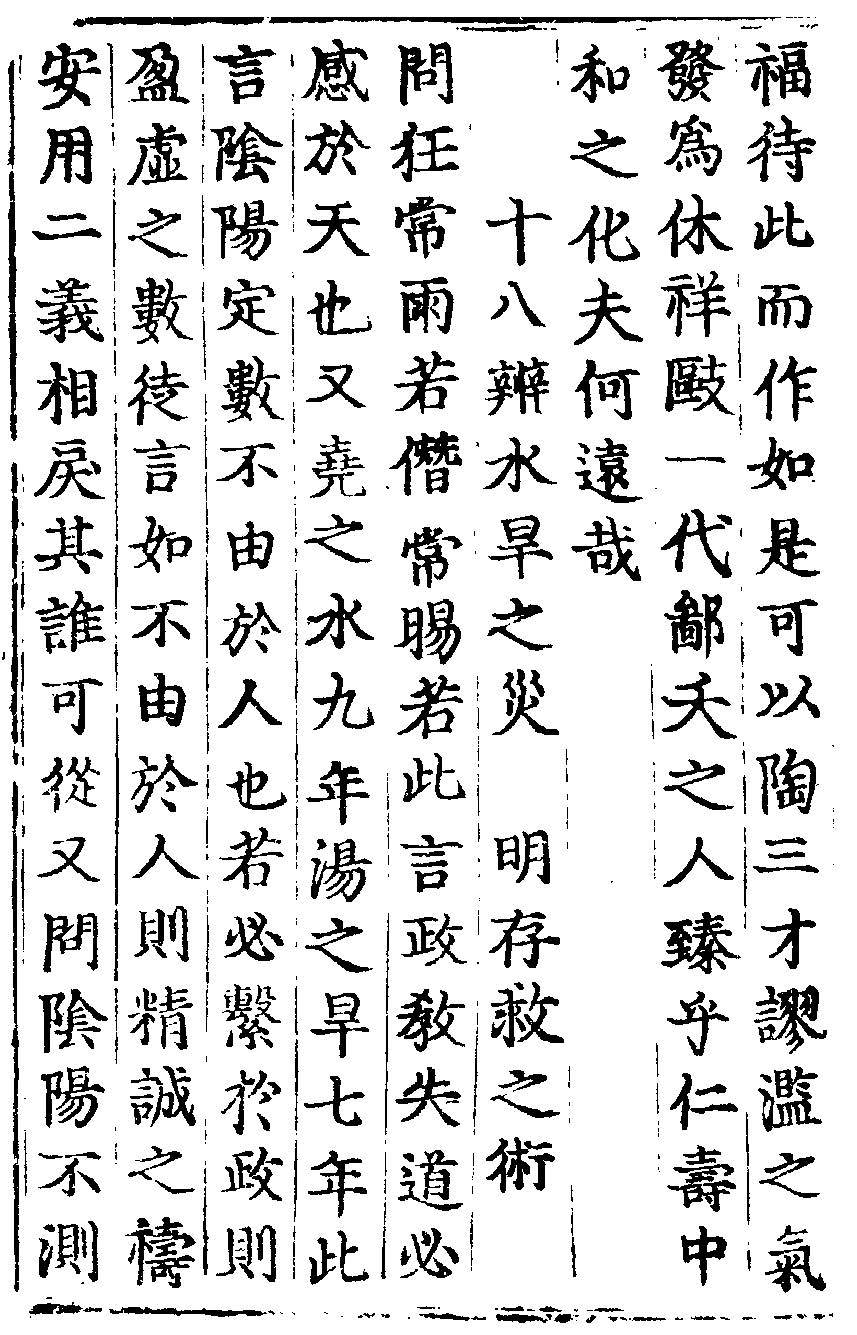 福待此而作如是可以陶三才謬濫之氣
發爲休祥敺一代鄙夭之人臻乎仁壽中
和之化夫何遠哉
十八辨水旱之災　明存救之術
問狂常雨若僭常暘若此言政教失道必
感於天也又堯之水九年湯之旱七年此
言陰陽定數不由於人也若必繫於政則
盈虛之數徒言如不由於人則精誠之禱
安用二義相戾其誰可從又問陰陽不測